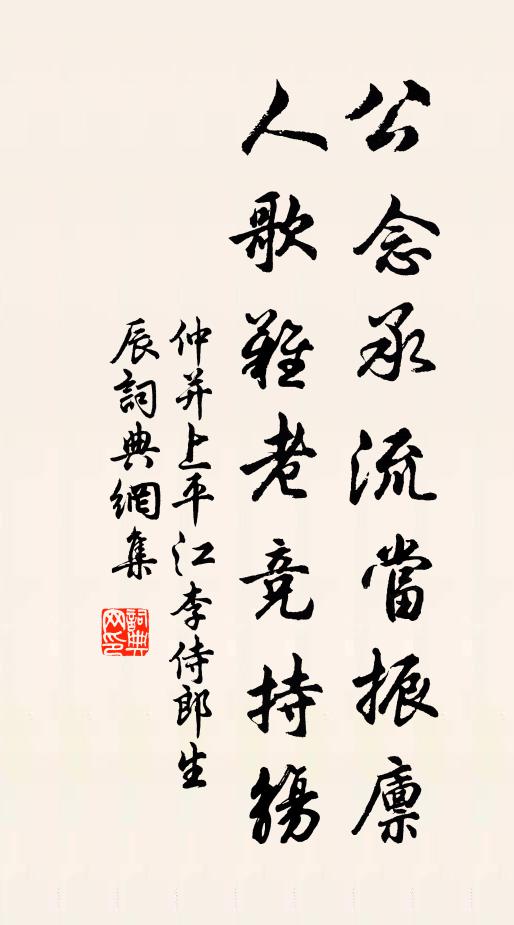 公念承流當振廩
人歌難老競持觴
仲并上平江李侍郎生
辰詞典網集
詞典網印